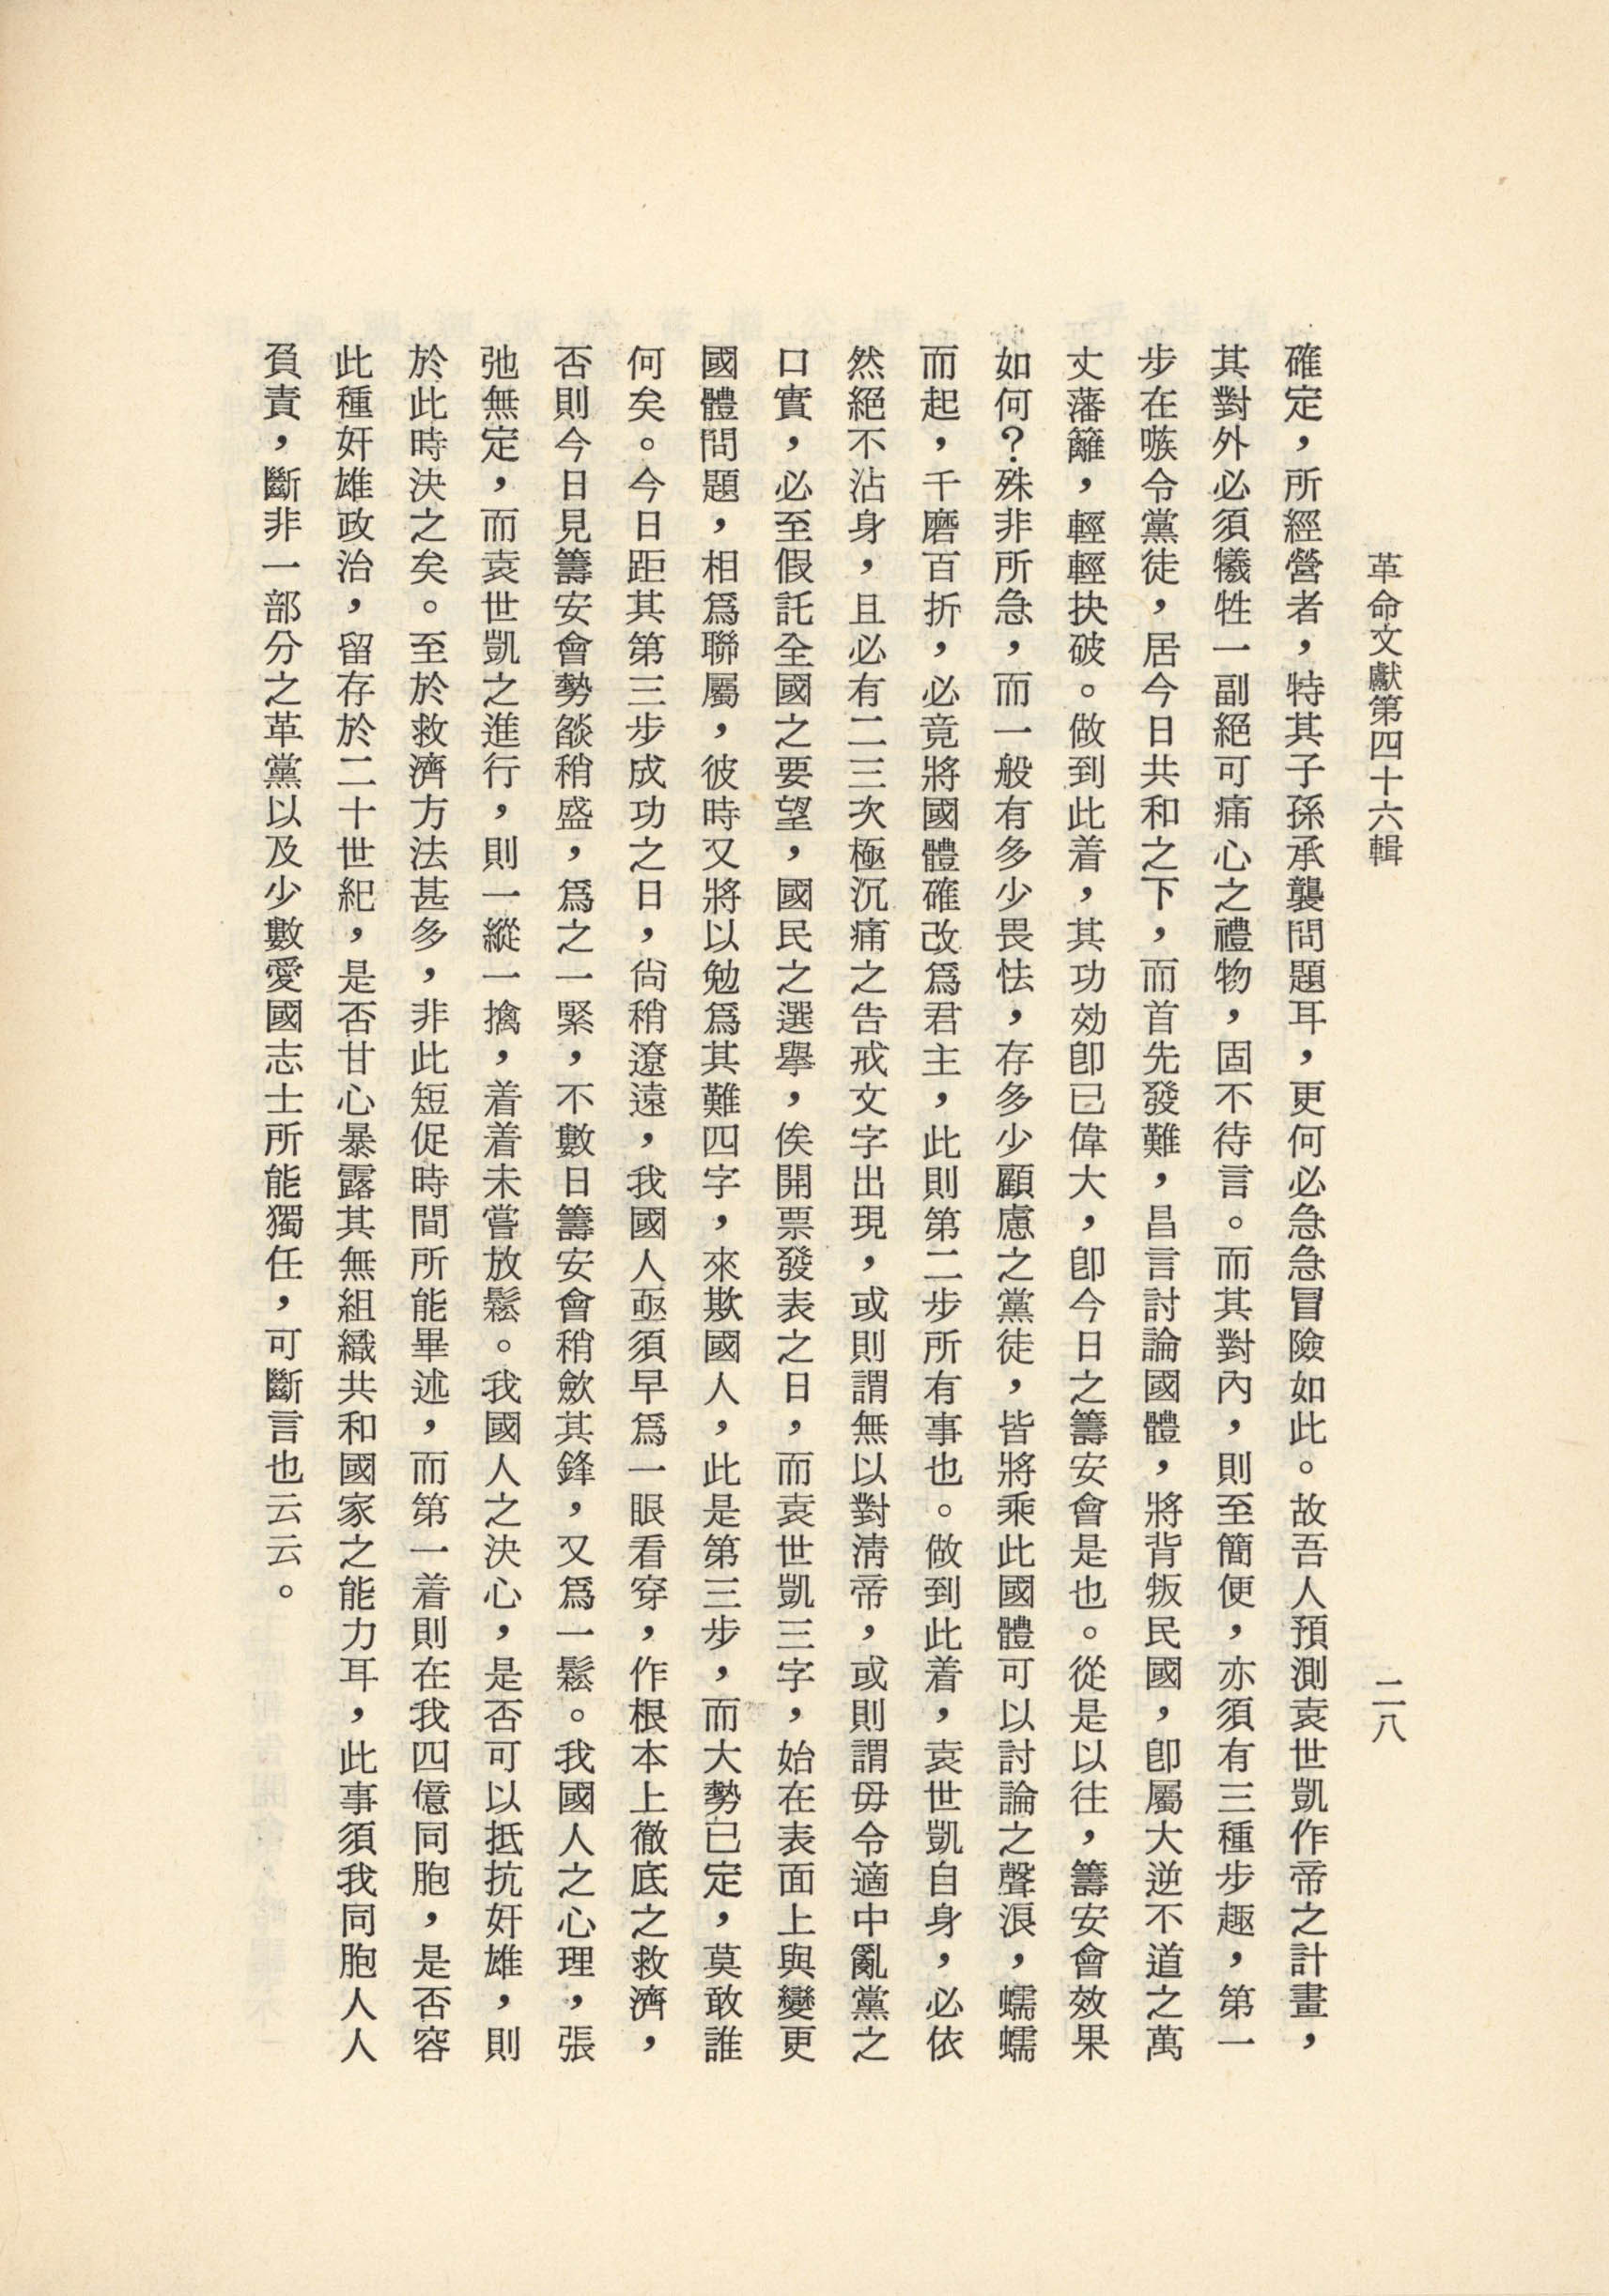 革命文獻第四十六輯
二八
確定，所經營者，特其子孫承襲問題耳，更何必急急冒險如此。故吾人預測袁世凱作帝之計畫，
其對外必須犧牲一副絕可痛心之禮物，固不待言。而其對內，則至簡便，亦須有三種步趣，第一
步在嗾令黨徒，居今日共和之下，而首先發難，昌言討論國體，將背叛民國，卽屬大逆不道之萬
丈藩籬，輕輕抉破。做到此着，其功効卽已偉大，卽今日之籌安會是也。從是以往，籌安會效果
如何？殊非所急，而一般有多少畏怯，存多少顧慮之黨徒，皆將乘此國體可以討論之聲浪，蠕蠕
而起，千磨百折，必竟將國體確改爲君主，此則第二步所有事也。做到此着，袁世凱自身，必依
然絕不沾身，且必有二三次極沉痛之告戒文字出現，或則謂無以對淸帝，或則謂毋令適中亂黨之
口實，必至假託全國之要望，國民之選舉，俟開票發表之日，而袁世凱三字，始在表面上與變更
國體問題，相爲聯屬，彼時又將以勉爲其難四字，來欺國人，此是第三步，而大勢已定，莫敢誰
何矣。今日距其第三步成功之日，尙稍遼遠，我國人亟須早爲一眼看穿，作根本上徹底之救濟，
否則今日見籌安會勢燄稍盛，爲之一緊，不數日籌安會稍歛其鋒，又爲一鬆。我國人之心理，張
弛無定，而袁世凱之進行，則一縱一擒，着着未嘗放鬆。我國人之決心，是否可以抵抗奸雄，則
於此時決之矣。至於救濟方法甚多，非此短促時間所能畢述，而第一着則在我四億同胞，是否容
此種奸雄政治，留存於二十世紀，是否甘心暴露其無組織共和國家之能力耳，此事須我同胞人人
負責，斷非一部分之革黨以及少數愛國志士所能獨任，可斷言也云云。